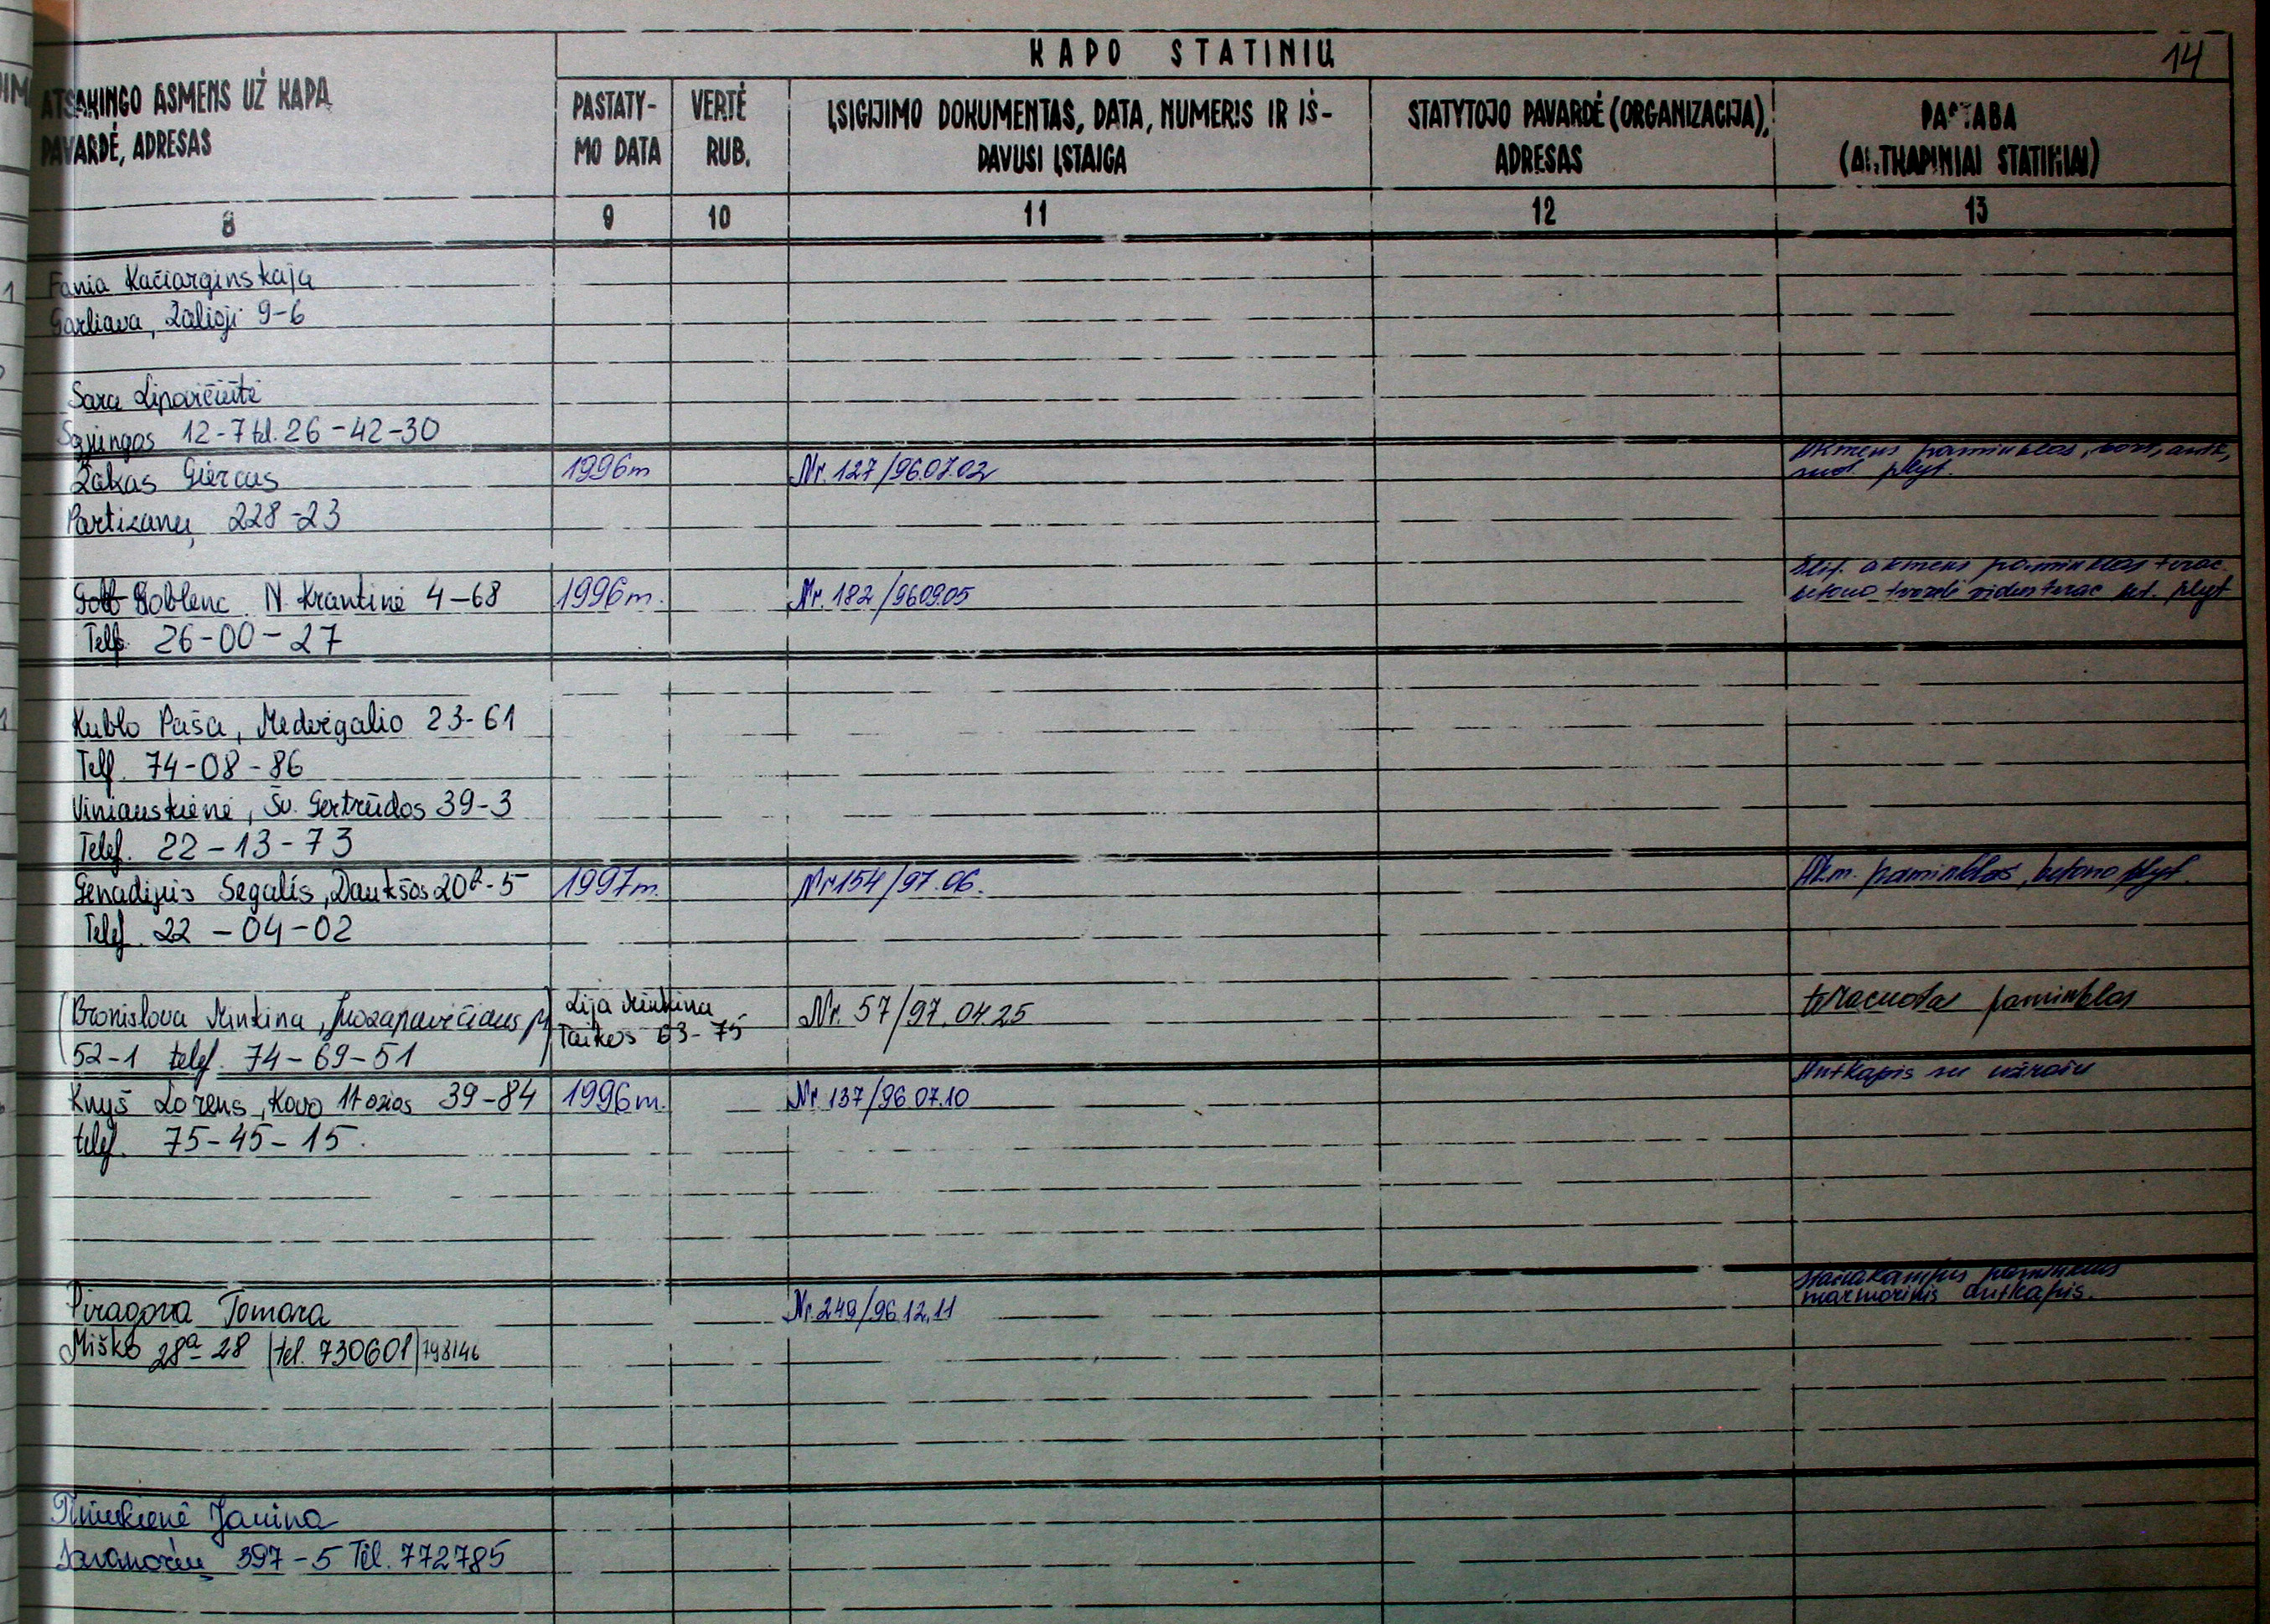 KAPO STATINIŲ
14
ATSAKINGO ASMENS UŽ KAPĄ
PAVARDĖ, ADRESAS
PASTATY-
MO DATA
VERTĖ
RUB.
ĮSIGIJIMO DOKUMENTAS, DATA, NUMERIS IR IŠ-
DAVUSI ĮSTAIGA
STATYTOJO PAVARDĖ (ORGANIZACIJA),
ADRESAS
PASTABA
(ANTKAPINIAI STATINIAI)
8 9 10 11 12 13
1 Fania Kačiarginskaja
Garliava, Žalioji 9-6
Sara Lipovičiūtė
Sąjungos 12-7 tel. 26-42-30
Akmens paminklas,
Žakas Giercas 1996m Nr. 127/96.07.02 plyt.
Partizanų 228-23
akmens paminklas
Goblenc N. Krantinė 4-68 1996m. Nr. 182/96.09.05 betono plyt
Telf. 26-00-27
Kublo Paša, Medvėgalio 23-61
Telf. 74-08-86
Viniauskienė, Šv. Gertrūdos 39-3
Telef. 22-13-73
Genadijus Segalis, Daukšos 20a-5 1997m. Nr 154/97.06. Akm. paminklas, betono plyt.
Telef. 22-04-02
(Bronislova Minkina, Juozapavičiaus pr. Lija Minkina Nr. 57/97.04.25 paminklas
52-1 telef. 74-69-51) Taikos 63-75
Antkapis su užrašu
Knyš Lorens, Kovo 11 osios 39-84 1996m. Nr 137/96.07.10
telef. 75-45-15.
Stačiakampis paminklas
Piragova Tomara Nr. 249/96.12.11 marmorinis antkapis.
Miško 28a-28 (tel. 730601) 798146
Janina
Savanorių 397-5 Tel. 772785